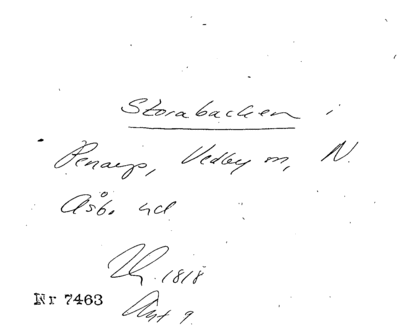 Storabacken i
Penarp, Vedby m, N.
Åsb. hd
1818
Nr 7463
Akt 9